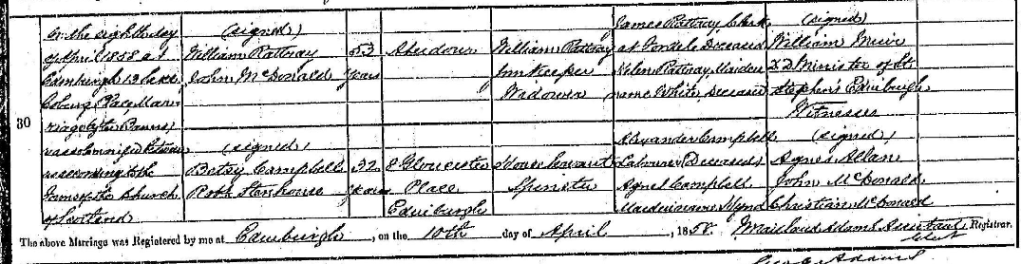 30
On the eighth day
of April 1858 at
Edinburgh
Coburg Place Mar-
riage (after Banns)
was solemnized between
according to the
Forms of the Church
of Scotland
(signed)
William Rattray
John McDonald
(signed)
Betsy Campbell
53
years
32
years
8 Gloucester
Place
Edinburgh
William Rattray
Inn Keeper
Widower
House Servant
Spinster
James Rattray, Clerk
at Deceased
Helen Rattray, Maiden
name White, Deceased
Alexander Campbell
Labourer Deceased
Agnes Campbell
Maiden name
(signed)
William Muir
Minister of St
Stephen's Edinburgh
Witnesses
(signed)
Agnes Allan
John McDonald
Christian McDonald
The above Marriage was Registered by me at Edinburgh, on the 10th day of April, 1858. Adams Assistant Registrar.
Adams